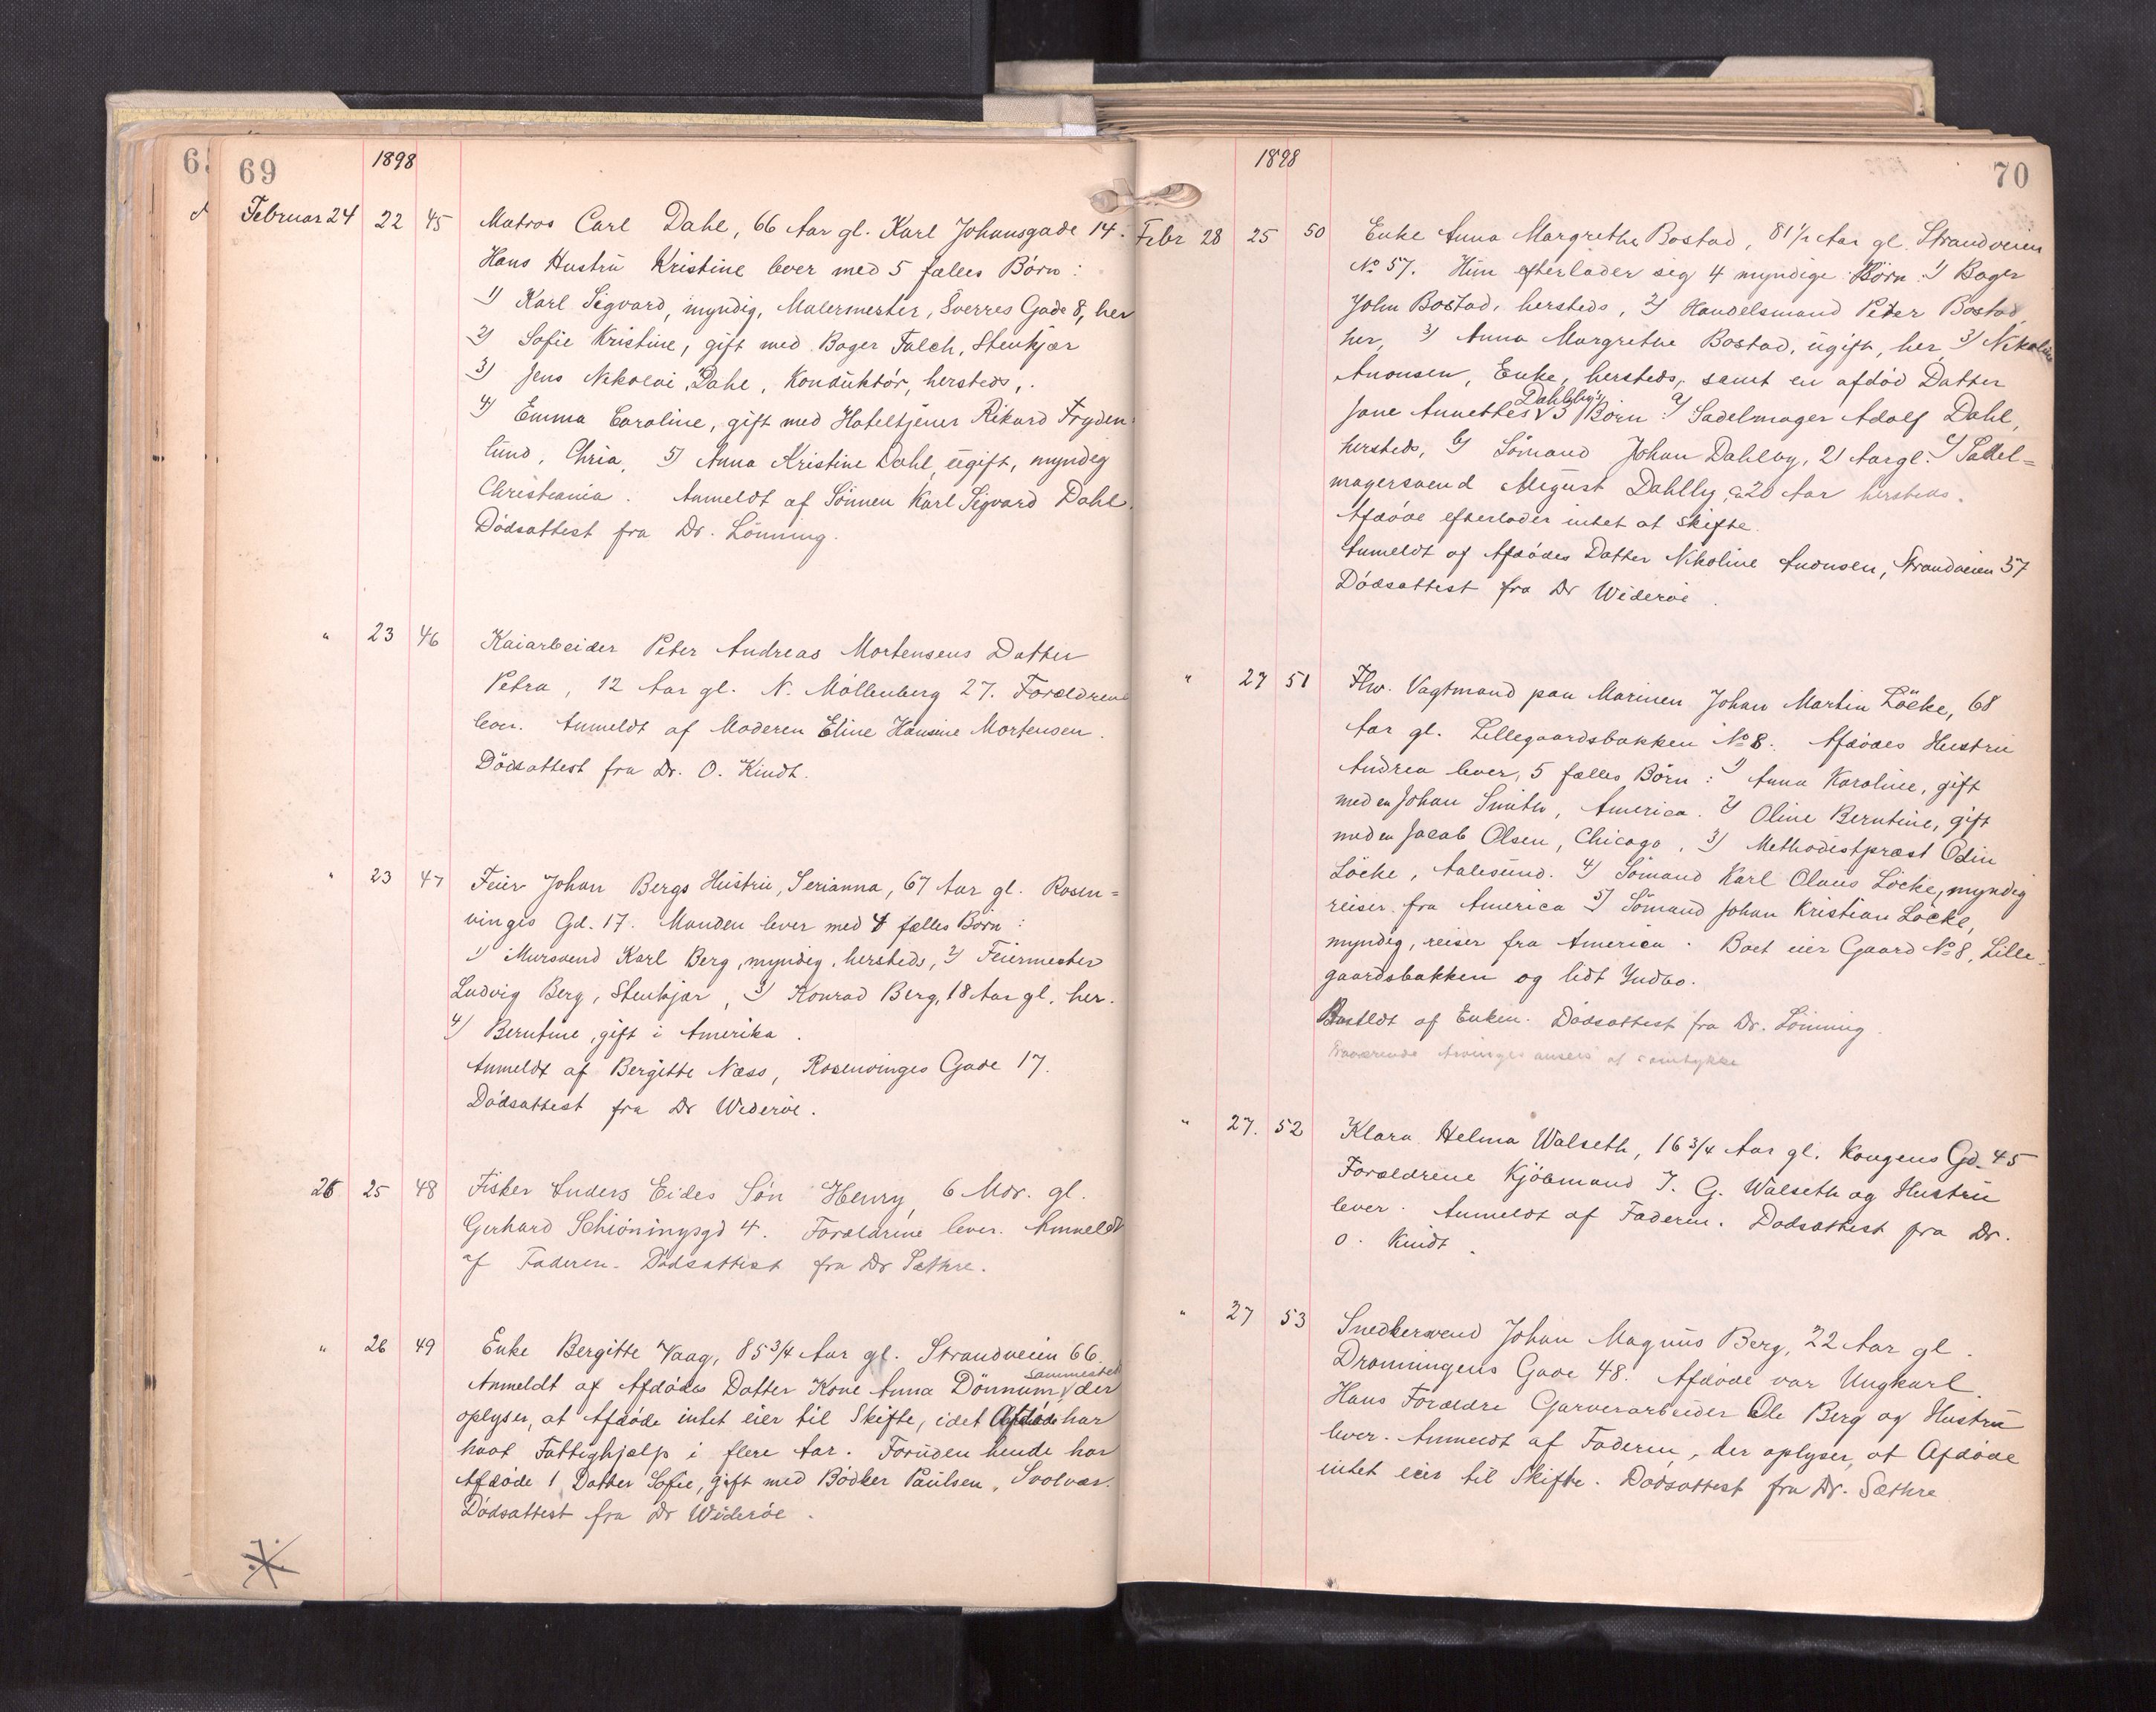 69
1898
Februar 24 22 45 Matros Carl Dahl, 66 Aar gl. Karl Johansgade 14.
Hans Hustru Kristine lever med 5 fælles Børn:
1) Karl Sigvard, myndig, Malermester, Sverres Gade 8, her
2) Sofie Kristine, gift med Bager Falch, Stenkjær
3) Jens Nikolai Dahl, Konduktør, hersteds,
4) Emma Caroline, gift med Hoteltjener Rikard Fryden
lund, Chria, 5) Anna Kristine Dahl, ugift, myndig
Christiania. Anmeldt af Sønnen Karl Sigvard Dahl.
Dødsattest fra Dr. Lönning.
" 23 46 Kaiarbeider Peter Andreas Mortensens Datter
Petra, 12 Aar gl. N. Møllenberg 27. Forældrene
lever. Anmeldt af Moderen Eline Hansine Mortensen.
Dödsattest fra Dr. O. Kindt.
" 23 47 Feier Johan Bergs Hustru, Serianna, 67 Aar gl. Rosen=
vinges Gd. 17. Manden lever med 4 fælles Børn:
1) Mursvend Karl Berg, myndig, hersteds, 2) Feiermester
Ludvig Berg, Stenkjær, 3) Konrad Berg, 18 Aar gl. her.
4) Berntine, gift i Amerika.
Anmeldt af Bergitte Næss, Rosenvinges Gade 17.
Dødsattest fra Dr Widerøe.
26 25 48 Fisker Anders Eides Søn Henry, 6 Mdr. gl.
Gerhard Schiöningsgd 4. Forældrene lever. Anmeldt
af Faderen. Dødsattest fra Dr Sæthre.
" 26 49 Enke Bergitte Vaag, 85 3/4 Aar gl. Strandveien 66.
sammested
Anmeldt af Afdødes Datter Kone Anna Dönnum, der
oplyser, at Afdøde intet eier til Skifte, idet Afdøde har
havt Fattighjælp i flere Aar. Foruden hende har
Afdøde 1 Datter Sofie, gift med Bødker Paulsen, Svolvær.
Dødsattest fra Dr Widerøe.
70
1898
Febr 28 25 50 Enke Anna Margrethe Bostad, 81 1/2 Aar gl. Strandveien
No 57. Hun efterlader sig 4 myndige Børn: 1) Bager
John Bostad, hersteds, 2) Handelsmand Peter Bostad,
her, 3) Anna Margrethe Bostad, ugift, her, 3) Nikoline
Anonsen, Enke, hersteds, samt en afdød Datter
Dahlby's
Jane Annettes 3 Børn: a) Sadelmager Adolf Dahl,
hersteds, b) Sömand Johan Dahlby, 21 Aar gl. c) Sadel=
magersvend August Dahlby, ca 20 Aar hersteds.
Afdøde efterlader intet at skifte.
Anmeldt af Afdødes Datter Nikoline Anonsen, Strandveien 57
Dødsattest fra Dr Widerøe.
" 27 51 Fhv. Vagtmand paa Marinen Johan Martin Löcke, 68
Aar gl. Lillegaardsbakken No 8. Afdødes Hustru
Andrea lever, 5 fælles Børn: 1) Anna Karoline, gift
med en Johan Smith, America. 2) Oline Berntine, gift
med en Jacob Olsen, Chicago, 3) Methodistpræst Odin
Löcke, Aalesund. 4) Sömand Karl Olaus Löcke, myndig
reiser fra America 5) Sömand Johan Kristian Löcke,
myndig, reiser fra America. Boet eier Gaard No 8, Lille=
gaardsbakken og lidt Indbo.
af Enken. Dødsattest fra Dr. Lönning.
" 27. 52 Klara Helma Walseth, 16 3/4 Aar gl. Kongens Gd. 45
Forældrene Kjøbmand J. G. Walseth og Hustru
lever. Anmeldt af Faderen. Dødsattest fra Dr.
O. Kindt.
" 27 53 Snedkersvend Johan Magnus Berg, 22 Aar gl.
Dronningens Gade 48. Afdøde var Ungkarl.
Hans Forældre Garverarbeider Ole Berg og Hustru
lever. Anmeldt af Faderen, der oplyser, at Afdøde
intet eier til Skifte. Dødsattest fra Dr. Sæthre